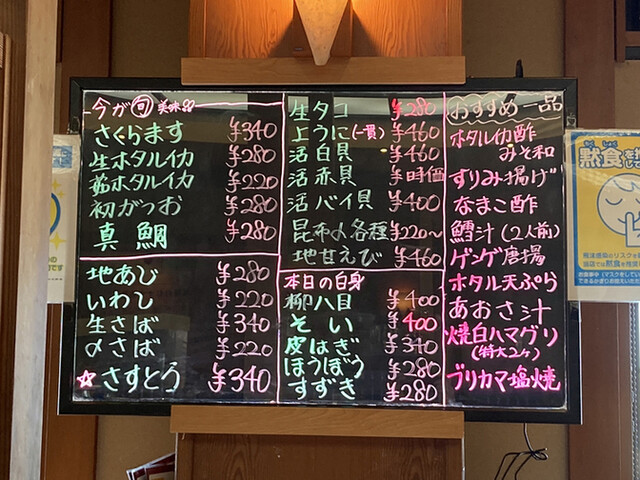 今が旬美味
さくらます ¥340
生ホタルイカ ¥280
茹ホタルイカ ¥220
初がつお ¥280
真鯛 ¥280
地あじ ¥280
いわし ¥220
生さば ¥340
〆さば ¥220
☆さすとろ ¥340
生タコ ¥280
上うに(一貫) ¥460
活白貝 ¥460
活赤貝 ¥時価
活バイ貝 ¥400
昆布〆各種 ¥220~
地甘えび ¥460
本日の白身
柳八目 ¥400
そい ¥400
皮はぎ ¥340
ほうぼう ¥280
すずき ¥280
おすすめ一品
ホタルイカ酢
みそ和
すりみ揚げ
なまこ酢
鱈汁(2人前)
ゲンゲ唐揚
ホタル天ぷら
あおさ汁
焼白ハマグリ
(特大2ケ)
ブリカマ塩焼
黙食